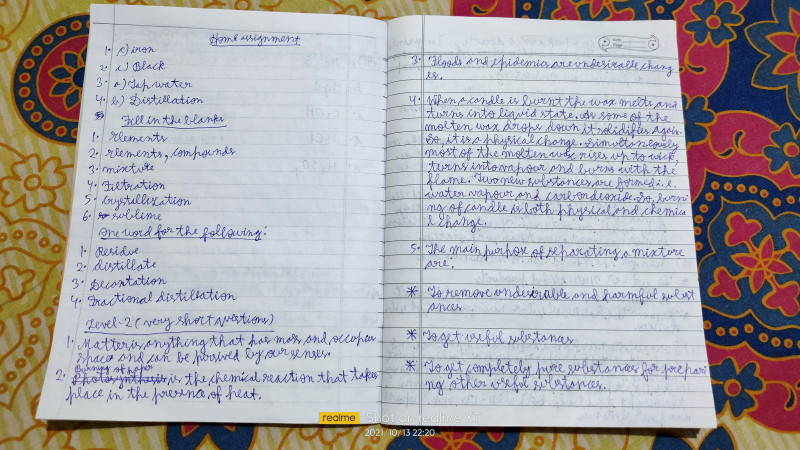 Home assignment
1. c) iron
2. c) Black
3. a) Tap water
4. b) Distillation
Fill in the blanks
1. Elements
2. elements, compounds
3. mixture
4. Filtration
5. Crystallization
6. sublime
One word for the following:
1. Residue
2. distillate
3. Decantation
4. Fractional distillation
Level-2 (very short questions)
1. Matter is anything that has mass and occupies
space and can be perived by our senses.
Burning of paper
2. Photosynthesis is the chemical reaction that takes
place in the presence of heat.
3. Floods and epidemics are undesirable chang
es.
4. When a candle is burnt the wax melts and
turns into liquid state. As some of the
molten wax drops down it solidifies again.
So, it is a physical change. Simultaneously
most of the molten wax rises up to wick
turns into vapour and burns with the
flame. Two new substances are formed i.e.
water vapour and carbondioxide. So, burni
ng of candle is both physical and chemica
l change.
5. The main purpose of separating a mixture
are:
* To remove undesirable and harmful subst
ances
* To get useful substances
* To get completely pure substances for prepari
ng other useful substances.
realme Shot on realme
2021/10/13 22:20